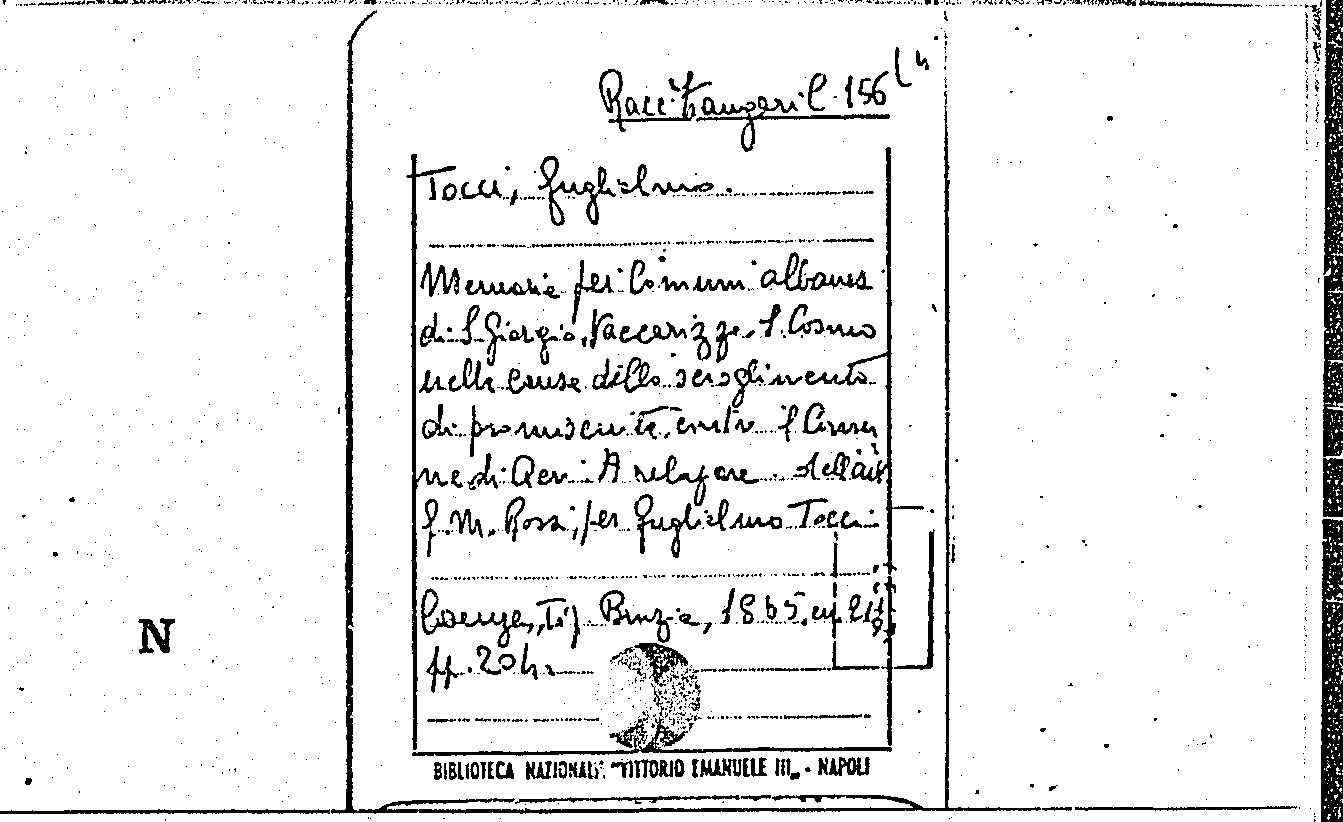 Racc. Zangari C. 156
Tocci, Guglielmo.
Memorie pei Comuni albanesi
di S. Giorgio, Vaccarizzo, S. Cosmo
nelle cause dello scioglimento
di promiscuità, contro il Comu
ne di Acri. A relazione dell'
G. M. Rossi, per Guglielmo Tocci.
Cosenza, Tip. Bruzia, 1865, in
pp. 204.
N
BIBLIOTECA NAZIONALE "VITTORIO EMANUELE III" - NAPOLI